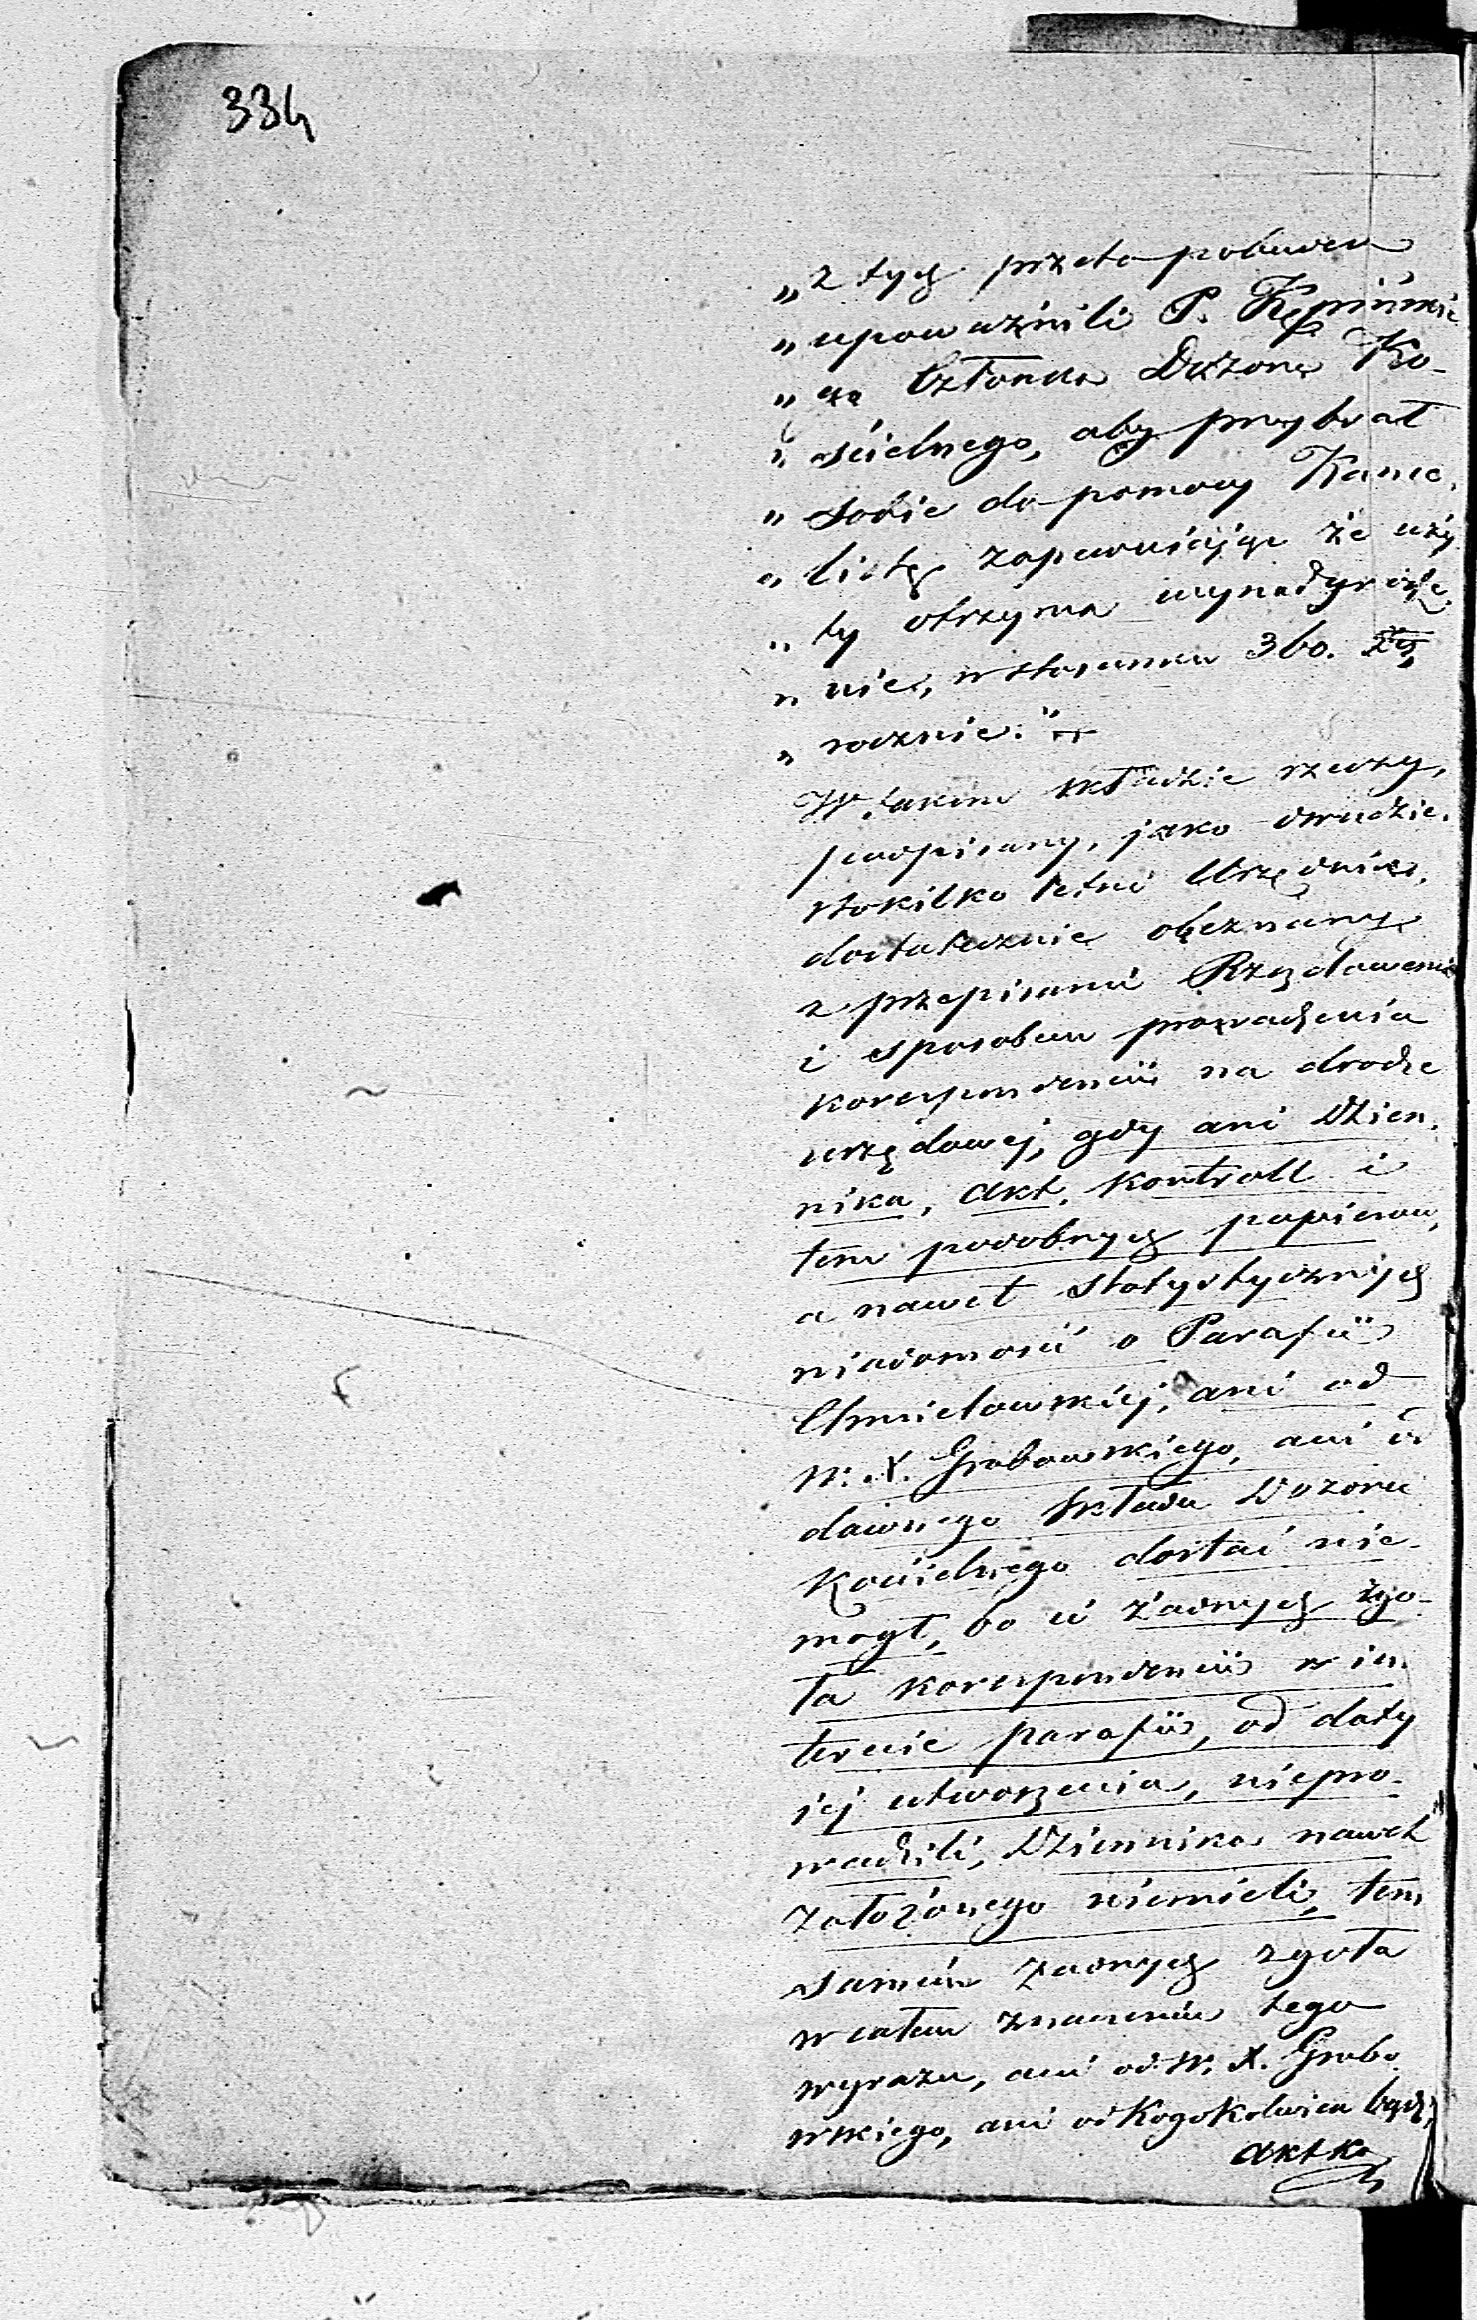 334
„z tych przeto pobudek
„upoważnili P. Kępińskie
„go Członka Dozoru Ko-
„ścielnego, aby przybrał
„sobie do pomocy Kance.
„listę zapewniając że uży
„ty otrzyma wynadgrodze.
„nie, w stosunku 360. Złp.
„rocznie."
W takim składzie rzeczy,
podpisany, jako dwudzie.
stokilko letni Urzędnik,
dostatecznie obeznany
z przepisami Rządowemi
i sposobem prowadzenia
korespondencii na drodze
urzędowej, gdy ani Dzien.
nika, akt, kontroll i
tem podobnych papierów,
a nawet statystycznych
wiadomości o Parafii
Chmielowskiej, ani od
W. X. Grabowskiego, ani od
dawnego składu Dozoru
Kościelnego dostać nie-
mógł, bo ci żadnych zgo-
ła korespondencii w in.
teresie parafii, od daty
jej utworzenia, niepro-
wadzili, Dziennika nawet
założonego niemieli, tem
samem żadnych zgoła
w całem znaczeniu tego
wyrazu, ani od W. X. Grabo
wskiego, ani od Kogokolwiek bądź,
akt ko